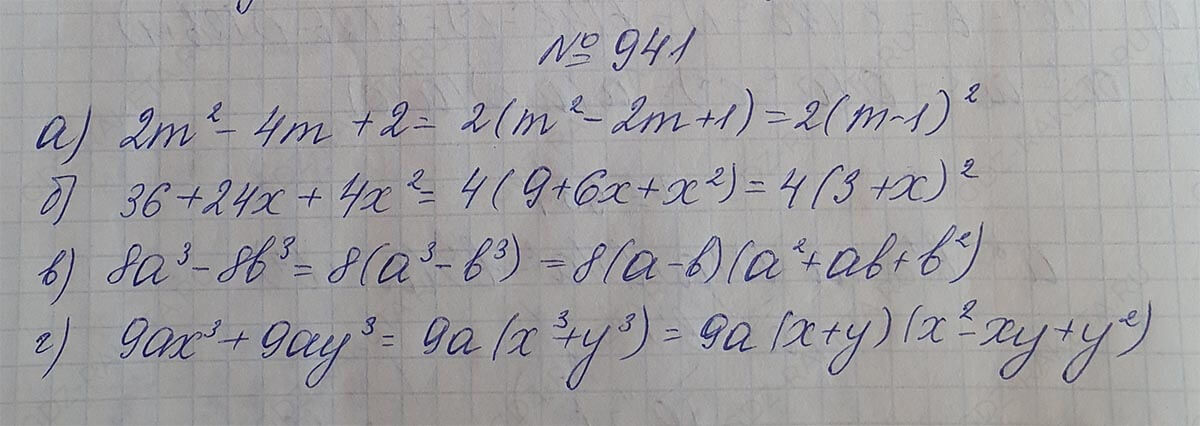 № 941
а) 2m² - 4m + 2 = 2(m² - 2m + 1) = 2(m-1)²
б) 36 + 24x + 4x² = 4(9 + 6x + x²) = 4(3 + x)²
в) 8a³ - 8b³ = 8(a³ - b³) = 8(a - b)(a² + ab + b²)
г) 9ax³ + 9ay³ = 9a(x³ + y³) = 9a(x + y)(x² - xy + y²)